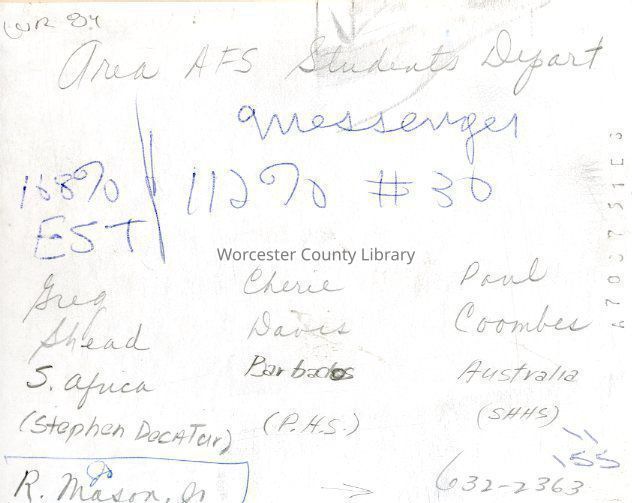 WR 84
Area AFS Students Depart
Messenger
188% 112% #30
EST
Worcester County Library
Greg Cherie Paul
Shead Davis Coombes
S. Africa Barbados Australia
(Stephen Decatur) (P.H.S.) (SHHS)
R. Mason, Jr 632-2363